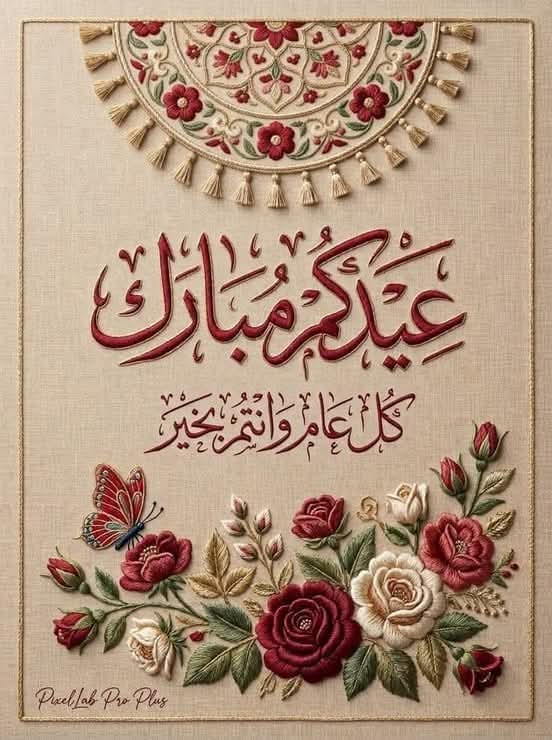 عِيْدكُمْ مُبَارَك
كُل عَام وَانتمُ بخَيَر
PixelLab Pro Plus